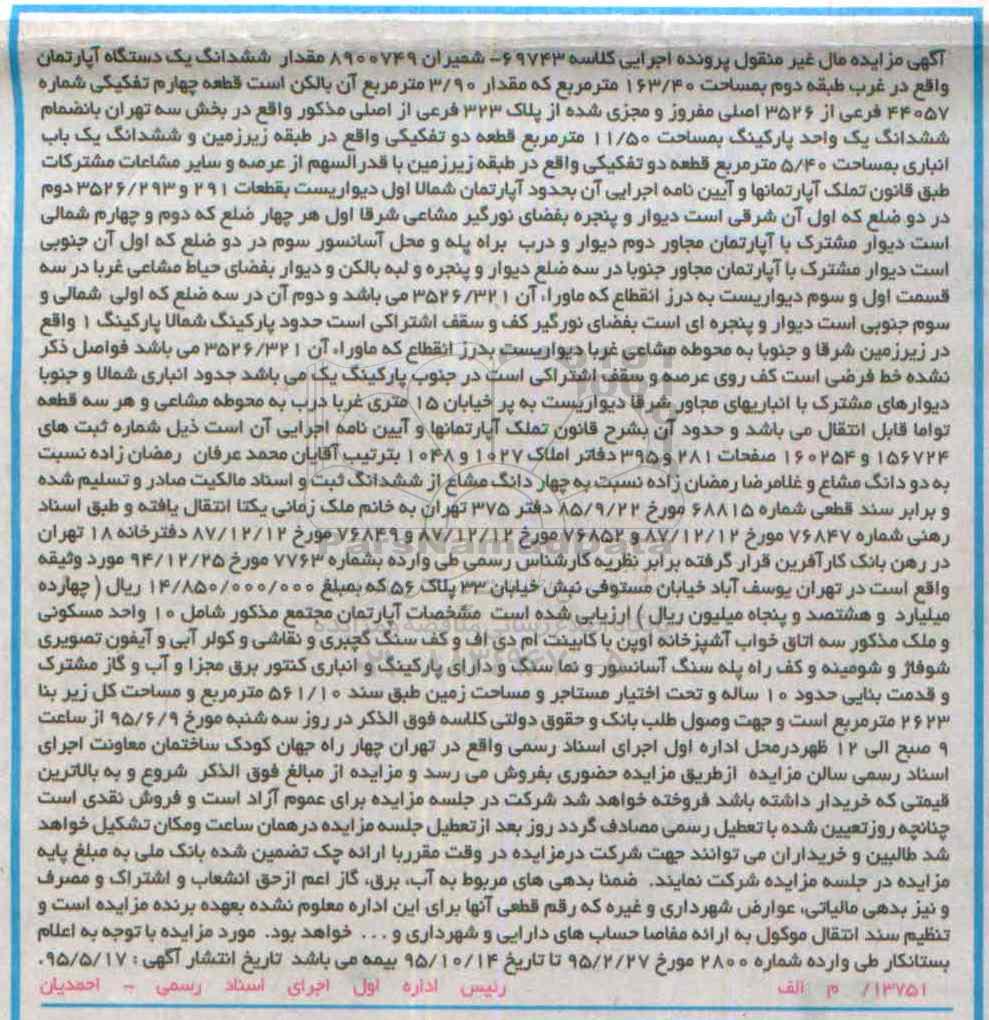 آگهی مزایده مال غیر منقول پرونده اجرایی کلاسه ۶۹۷۴۳- شمیران ۸۹۰۰۷۴۹ مقدار ششدانگ یک دستگاه آپارتمان
واقع در غرب طبقه دوم بمساحت ۱۶۳/۴۰ مترمربع که مقدار ۳/۹۰ مترمربع آن بالکن است قطعه چهارم تفکیکی شماره
۴۴۰۵۷ فرعی از ۳۵۲۶ اصلی مفروز و مجزی شده از پلاک ۳۲۳ فرعی از اصلی مذکور واقع در بخش سه تهران بانضمام
ششدانگ یک واحد پارکینگ بمساحت ۱۱/۵۰ مترمربع قطعه دو تفکیکی واقع در طبقه زیرزمین و ششدانگ یک باب
انباری بمساحت ۵/۴۰ مترمربع قطعه دو تفکیکی واقع در طبقه زیرزمین با قدرالسهم از عرصه و سایر مشاعات مشترکات
طبق قانون تملک آپارتمانها و آیین نامه اجرایی آن بحدود آپارتمان شمالا اول دیواریست بقطعات ۲۹۱ و ۳۵۲۶/۲۹۳ دوم
در دو ضلع که اول آن شرقی است دیوار و پنجره بفضای نورگیر مشاعی شرقا اول هر چهار ضلع که دوم و چهارم شمالی
است دیوار مشترک با آپارتمان مجاور دوم دیوار و درب براه پله و محل آسانسور سوم در دو ضلع که اول آن جنوبی
است دیوار مشترک با آپارتمان مجاور جنوبا در سه ضلع دیوار و پنجره و لبه بالکن و دیوار بفضای حیاط مشاعی غربا در سه
قسمت اول و سوم دیواریست به درز انقطاع که ماوراء آن ۳۵۲۶/۳۲۱ می باشد و دوم آن در سه ضلع که اولی شمالی و
سوم جنوبی است دیوار و پنجره ای است بفضای نورگیر کف و سقف اشتراکی است حدود پارکینگ شمالا پارکینگ ۱ واقع
در زیرزمین شرقا و جنوبا به محوطه مشاعی غربا دیواریست بدرز انقطاع که ماوراء آن ۳۵۲۶/۳۲۱ می باشد فواصل ذکر
نشده خط فرضی است کف روی عرصه و سقف اشتراکی است در جنوب پارکینگ یک می باشد حدود انباری شمالا و جنوبا
دیوارهای مشترک با انباریهای مجاور شرقا دیواریست به پر خیابان ۱۵ متری غربا درب به محوطه مشاعی و هر سه قطعه
تواما قابل انتقال می باشد و حدود آن بشرح قانون تملک آپارتمانها و آیین نامه اجرایی آن است ذیل شماره ثبت های
۱۵۶۷۲۴ و ۱۶۰۲۵۴ صفحات ۲۸۱ و ۳۹۵ دفاتر املاک ۱۰۲۷ و ۱۰۴۸ بترتیب آقایان محمد عرفان رمضان زاده نسبت
به دو دانگ مشاع و غلامرضا رمضان زاده نسبت به چهار دانگ مشاع از ششدانگ ثبت و اسناد مالکیت صادر و تسلیم شده
و برابر سند قطعی شماره ۶۸۸۱۵ مورخ ۸۵/۹/۲۲ دفتر ۳۷۵ تهران به خانم ملک زمانی یکتا انتقال یافته و طبق اسناد
رهنی شماره ۷۶۸۴۷ مورخ ۸۷/۱۲/۱۲ و ۷۶۸۵۲ مورخ ۸۷/۱۲/۱۲ و ۷۶۸۴۹ مورخ ۸۷/۱۲/۱۲ دفترخانه ۱۸ تهران
در رهن بانک کارآفرین قرار گرفته برابر نظریه کارشناس رسمی طی وارده بشماره ۷۷۶۳ مورخ ۹۴/۱۲/۲۵ مورد وثیقه
واقع است در تهران یوسف آباد خیابان مستوفی نبش خیابان ۳۳ پلاک ۵۶ که بمبلغ ۱۴/۸۵۰/۰۰۰/۰۰۰ ریال ( چهارده
میلیارد و هشتصد و پنجاه میلیون ریال ) ارزیابی شده است مشخصات آپارتمان مجتمع مذکور شامل ۱۰ واحد مسکونی
و ملک مذکور سه اتاق خواب آشپزخانه اوپن با کابینت ام دی اف و کف سنگ گچبری و نقاشی و کولر آبی و آیفون تصویری
شوفاژ و شومینه و کف راه پله سنگ آسانسور و نما سنگ و دارای پارکینگ و انباری کنتور برق مجزا و آب و گاز مشترک
و قدمت بنایی حدود ۱۰ ساله و تحت اختیار مستاجر و مساحت زمین طبق سند ۵۶۱/۱۰ مترمربع و مساحت کل زیر بنا
۲۶۲۳ مترمربع است و جهت وصول طلب بانک و حقوق دولتی کلاسه فوق الذکر در روز سه شنبه مورخ ۹۵/۶/۹ از ساعت
۹ صبح الی ۱۲ ظهردرمحل اداره اول اجرای اسناد رسمی واقع در تهران چهار راه جهان کودک ساختمان معاونت اجرای
اسناد رسمی سالن مزایده ازطریق مزایده حضوری بفروش می رسد و مزایده از مبالغ فوق الذکر شروع و به بالاترین
قیمتی که خریدار داشته باشد فروخته خواهد شد شرکت در جلسه مزایده برای عموم آزاد است و فروش نقدی است
چنانچه روزتعیین شده با تعطیل رسمی مصادف گردد روز بعد ازتعطیل جلسه مزایده درهمان ساعت ومکان تشکیل خواهد
شد طالبین و خریداران می توانند جهت شرکت درمزایده در وقت مقرربا ارائه چک تضمین شده بانک ملی به مبلغ پایه
مزایده در جلسه مزایده شرکت نمایند. ضمنا بدهی های مربوط به آب، برق، گاز اعم ازحق انشعاب و اشتراک و مصرف
و نیز بدهی مالیاتی، عوارض شهرداری و غیره که رقم قطعی آنها برای این اداره معلوم نشده بعهده برنده مزایده است و
تنظیم سند انتقال موکول به ارائه مفاصا حساب های دارایی و شهرداری و ... خواهد بود. مورد مزایده با توجه به اعلام
بستانکار طی وارده شماره ۲۸۰۰ مورخ ۹۵/۲/۲۷ تا تاریخ ۹۵/۱۰/۱۴ بیمه می باشد تاریخ انتشار آگهی : ۹۵/۵/۱۷.
۱۳۷۵۱/ م الف رئیس اداره اول اجرای اسناد رسمی - احمدیان
ParsNamadData